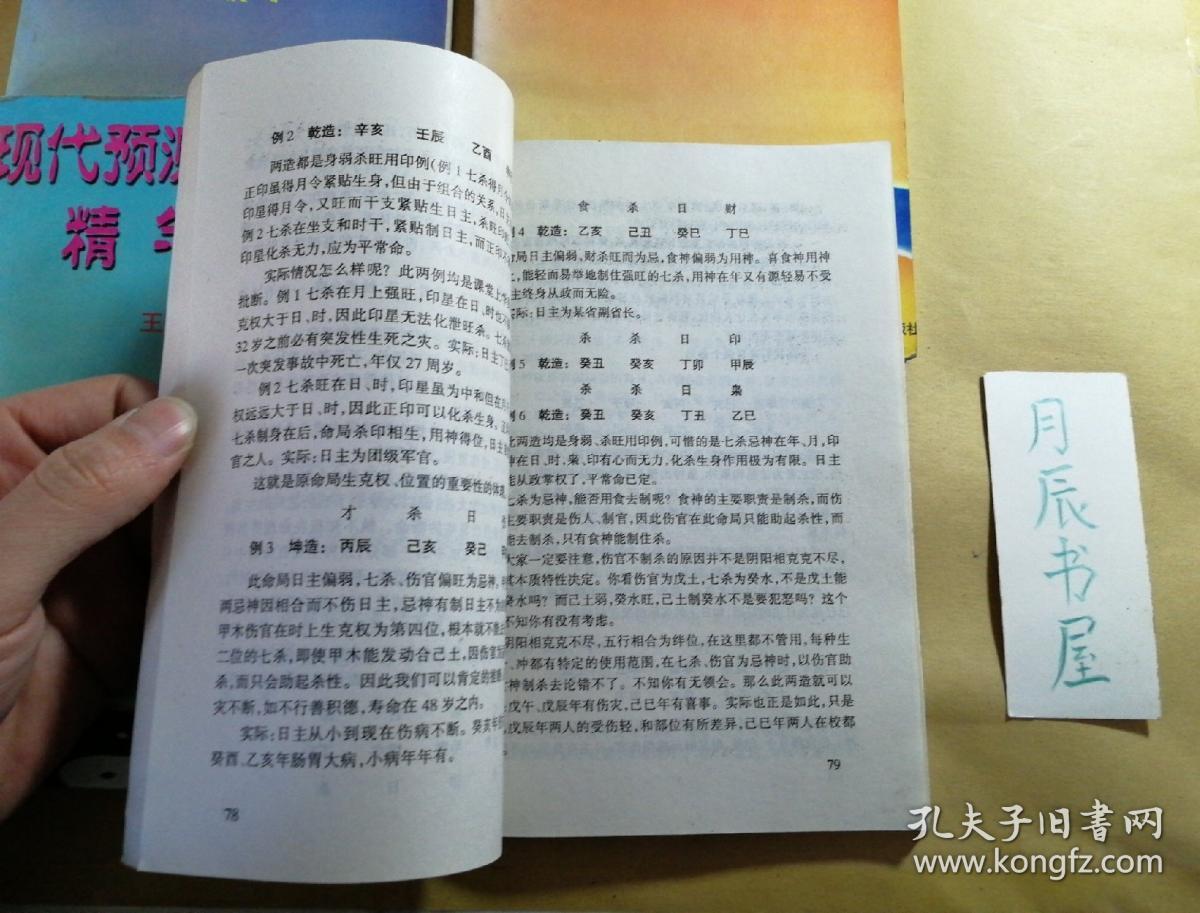 现代预测
精
王
例2 乾造：辛亥 壬辰 乙酉
两造都是身弱杀旺用印例(例1七杀得月令
正印虽得月令紧贴生身，但由于组合的关系，日
印星得月令，又旺而干支紧贴生日主，杀旺印
例2七杀在坐支和时干，紧贴制日主，而正印
印星化杀无力，应为平常命。
实际情况怎么样呢？此两例均是课堂上
批断。例1七杀在月上强旺，印星在日、时
克权大于日、时，因此印星无法化泄旺杀。七
32岁之前必有突发性生死之灾。实际：日主
一次突发事故中死亡，年仅27周岁。
例2七杀旺在日、时，印星虽为中和但在
权远远大于日、时，因此正印可以化杀生身。
七杀制身在后，命局杀印相生，用神得位，日主
官之人。实际：日主为团级军官。
这就是原命局生克权、位置的重要性的体现
才 杀 日
例3 坤造：丙辰 己亥 癸己
此命局日主偏弱，七杀、伤官偏旺为忌神，
两忌神因相合而不伤日主，忌神有制日主不为
甲木伤官在时上生克权为第四位，根本就不能
二位的七杀，即使甲木能发动合己土，因伤官
杀，而只会助起杀性。因此我们可以肯定的推断
灾不断，如不行善积德，寿命在48岁之内。
实际：日主从小到现在伤病不断。癸亥年
癸酉、乙亥年肠胃大病，小病年年有。
78
食 杀 日 财
例4 乾造：乙亥 己丑 癸巳 丁巳
命局日主偏弱，财杀旺而为忌，食神偏弱为用神。喜食神用神
上，能轻而易举地制住强旺的七杀，用神在年又有源轻易不受
主终身从政而无险。
实际：日主为某省副省长。
杀 杀 日 印
例5 乾造：癸丑 癸亥 丁卯 甲辰
杀 杀 日 枭
例6 乾造：癸丑 癸亥 丁丑 乙巳
此两造均是身弱、杀旺用印例，可惜的是七杀忌神在年、月，印
神在日、时，枭、印有心而无力，化杀生身作用极为有限。日主
能从政掌权了，平常命已定。
七杀为忌神，能否用食去制呢？食神的主要职责是制杀，而伤
主要职责是伤人、制官，因此伤官在此命局只能助起杀性，而
能去制杀，只有食神能制住杀。
大家一定要注意，伤官不制杀的原因并不是阴阳相克克不尽，
其本质特性决定。你看伤官为戊土，七杀为癸水，不是戊土能
癸水吗？而己土弱，癸水旺，己土制癸水不是要犯怒吗？这个
不知你有没有考虑。
阴阳相克克不尽，五行相合为绊位，在这里都不管用，每种生
、冲都有特定的使用范围，在七杀、伤官为忌神时，以伤官助
神制杀去论错不了。不知你有无领会。那么此两造就可以
戊午、戊辰年有伤灾，己巳年有喜事。实际也正是如此，只是
戊辰年两人的受伤轻，和部位有所差异，己巳年两人在校都
79
月辰书屋
孔夫子旧书网
www.kongfz.com